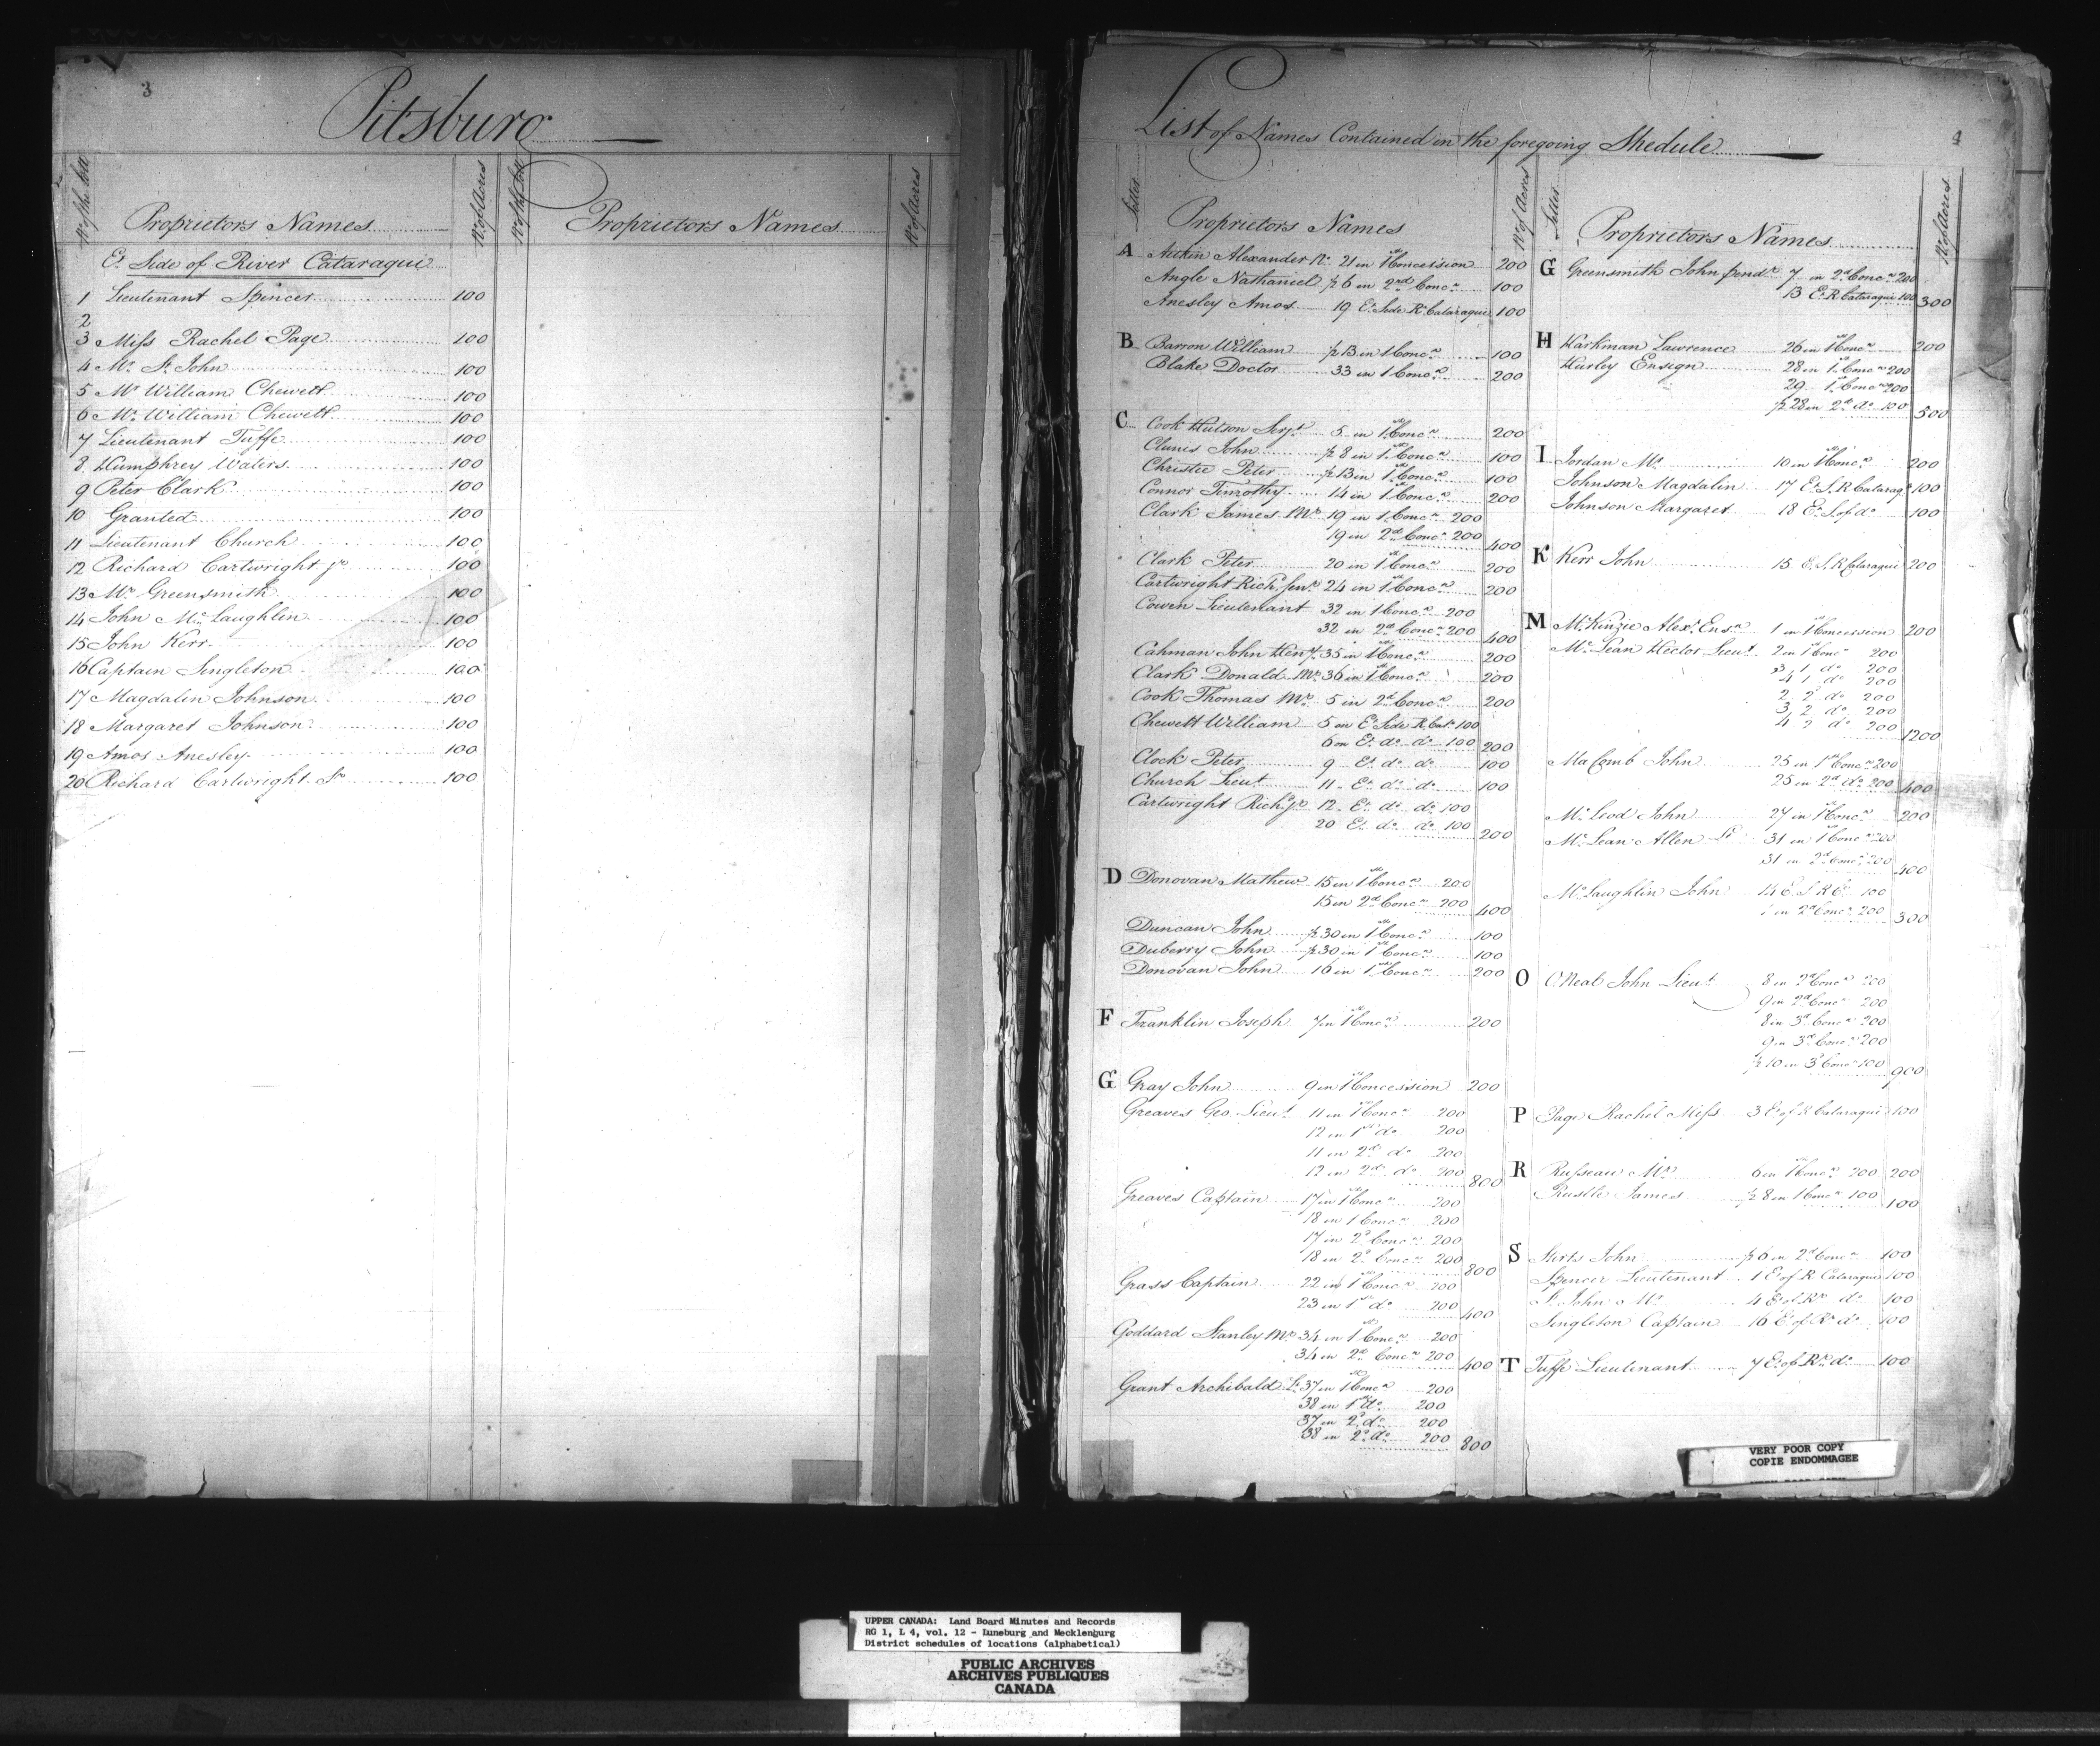 3
Pitsburg
No of the Lott
Proprietors Names
No of Acres
No of the Lott
Proprietors Names
No of Acres
Et Side of River Cataraqui
1 Lieutenant Spencer 100
2
3 Miss Rachel Page 100
4 Mr St John 100
5 Mr William Chewett 100
6 Mr William Chewett 100
7 Lieutenant Tuffe 100
8 Humphrey Waters 100
9 Peter Clark 100
10 Granted 100
11 Lieutenant Church 100
12 Richard Cartwright jr 100
13 Mr Greensmith 100
14 John McLaughlin 100
15 John Kerr 100
16 Captain Singleton 100
17 Magdalin Johnson 100
18 Margaret Johnson 100
19 Amos Anesley 100
20 Richard Cartwright Jr 100
List of Names Contained in the foregoing Shedule
4
Letter
Proprietors Names
No of Acres
A Aitkin Alexander No 21 in 1st Concession 200
Angle Nathaniel ½ 6 in 2nd Concn 100
Anesley Amos 19 Et Side R Cataraqui 100
B Barron William ½ 13 in 1st Concn 100
Blake Doctor 33 in 1 Concn 200
C Cook Hutson Serjt 5 in 1st Concn 200
Clunis John ½ 8 in 1st Concn 100
Christie Peter ½ 13 in 1st Concn 100
Connor Timothy 14 in 1st Concn 200
Clark James Mr 19 in 1 Concn 200
19 in 2d Concn 200 400
Clark Peter 20 in 1st Concn 200
Cartwright Richd Senr 24 in 1st Concn 200
Cowen Lieutenant 32 in 1 Concn 200
32 in 2d Concn 200 400
Cahman John Heny 35 in 1st Concn 200
Clark Donald Mr 36 in 1st Concn 200
Cook Thomas Mr 5 in 2d Concn 200
Chewett William 5 on Et Side R Catr 100
6 on Et do do 100 200
Clock Peter 9 Et do do 100
Church Lieut 11 Et do do 100
Cartwright Richd jr 12 Et do do 100
20 Et do do 100 200
D Donovan Mathew 15 in 1st Concn 200
15 in 2d Concn 200 400
Duncan John ½ 30 in 1st Concn 100
Duberry John ½ 30 in 1st Concn 100
Donovan John 16 in 1st Concn 200
F Franklin Joseph 7 in 1st Concn 200
G Gray John 9 in 1st Concession 200
Greaves Geo Lieut 11 in 1st Concn 200
12 in 1st do 200
11 in 2d do 200
12 in 2d do 200 800
Greaves Captain 17 in 1st Concn 200
18 in 1 Concn 200
17 in 2d Concn 200
18 in 2d Concn 200 800
Grass Captain 22 in 1st Concn 200
23 in 1st do 200 400
Goddard Stanley Mr 34 in 1st Concn 200
34 in 2d Concn 200 400
Grant Archibald Lt 37 in 1st Concn 200
38 in 1st do 200
37 in 2d do 200
38 in 2d do 200 800
Letter
Proprietors Names
No of Acres
G Greensmith John 7 in 2d Concn 200
13 Et R Cataraqui 100 300
H Harkman Lawrence 26 in 1st Concn 200
Hurley Ensign 28 in 1st Concn 200
29 1st Concn 200
½ 28 in 2d do 100 500
I Jordan Mr 10 in 1st Concn 200
Johnson Magdalin 17 Et S. R Cataraqi 100
Johnson Margaret 18 Et S. of do 100
K Kerr John 15 E. S. R Cataraqui 200
M McKinzie Alexr Ensn 1 in 1st Concession 200
McLean Hector Lieut 2 in 1st Concn 200
3, 1 do 200
4 1 do 200
2, 2 do 200
3, 2 do 200
4 2 do 200 1200
MaComb John 25 in 1st Concn 200
25 in 2d do 200 400
McLeod John 27 in 1st Concn 200
McLean Allen Lt 31 in 1st Concn 200
31 in 2d Concn 200 400
McLaughlin John 14 E S R C 100
in 2d Concn 200 300
O ONeal John Lieut 8 in 2d Concn 200
9 in 2d Concn 200
8 in 3d Concn 200
9 in 3d Concn 200
½ 10 in 3d Concn 100 900
P Page Rachel Miss 3 Et of R Cataraqui 100
R Russeau Mr 6 in 1st Concn 200 200
Rustle James ½ 8 in 1 Concn 100 100
S John ½ 6 in 2d Concn 100
Spencer Lieutenant 1 E of R Cataraqui 100
St John Mr 4 Et of Rr do 100
Singleton Captain 16 E of Rr do 100
T Tuffe Lieutenant 7 Et of Rr do 100
VERY POOR COPY
COPIE ENDOMMAGEE
UPPER CANADA: Land Board Minutes and Records
RG 1, L 4, vol. 12 - Luneburg and Mecklenburg
District schedules of locations (alphabetical)
PUBLIC ARCHIVES
ARCHIVES PUBLIQUES
CANADA